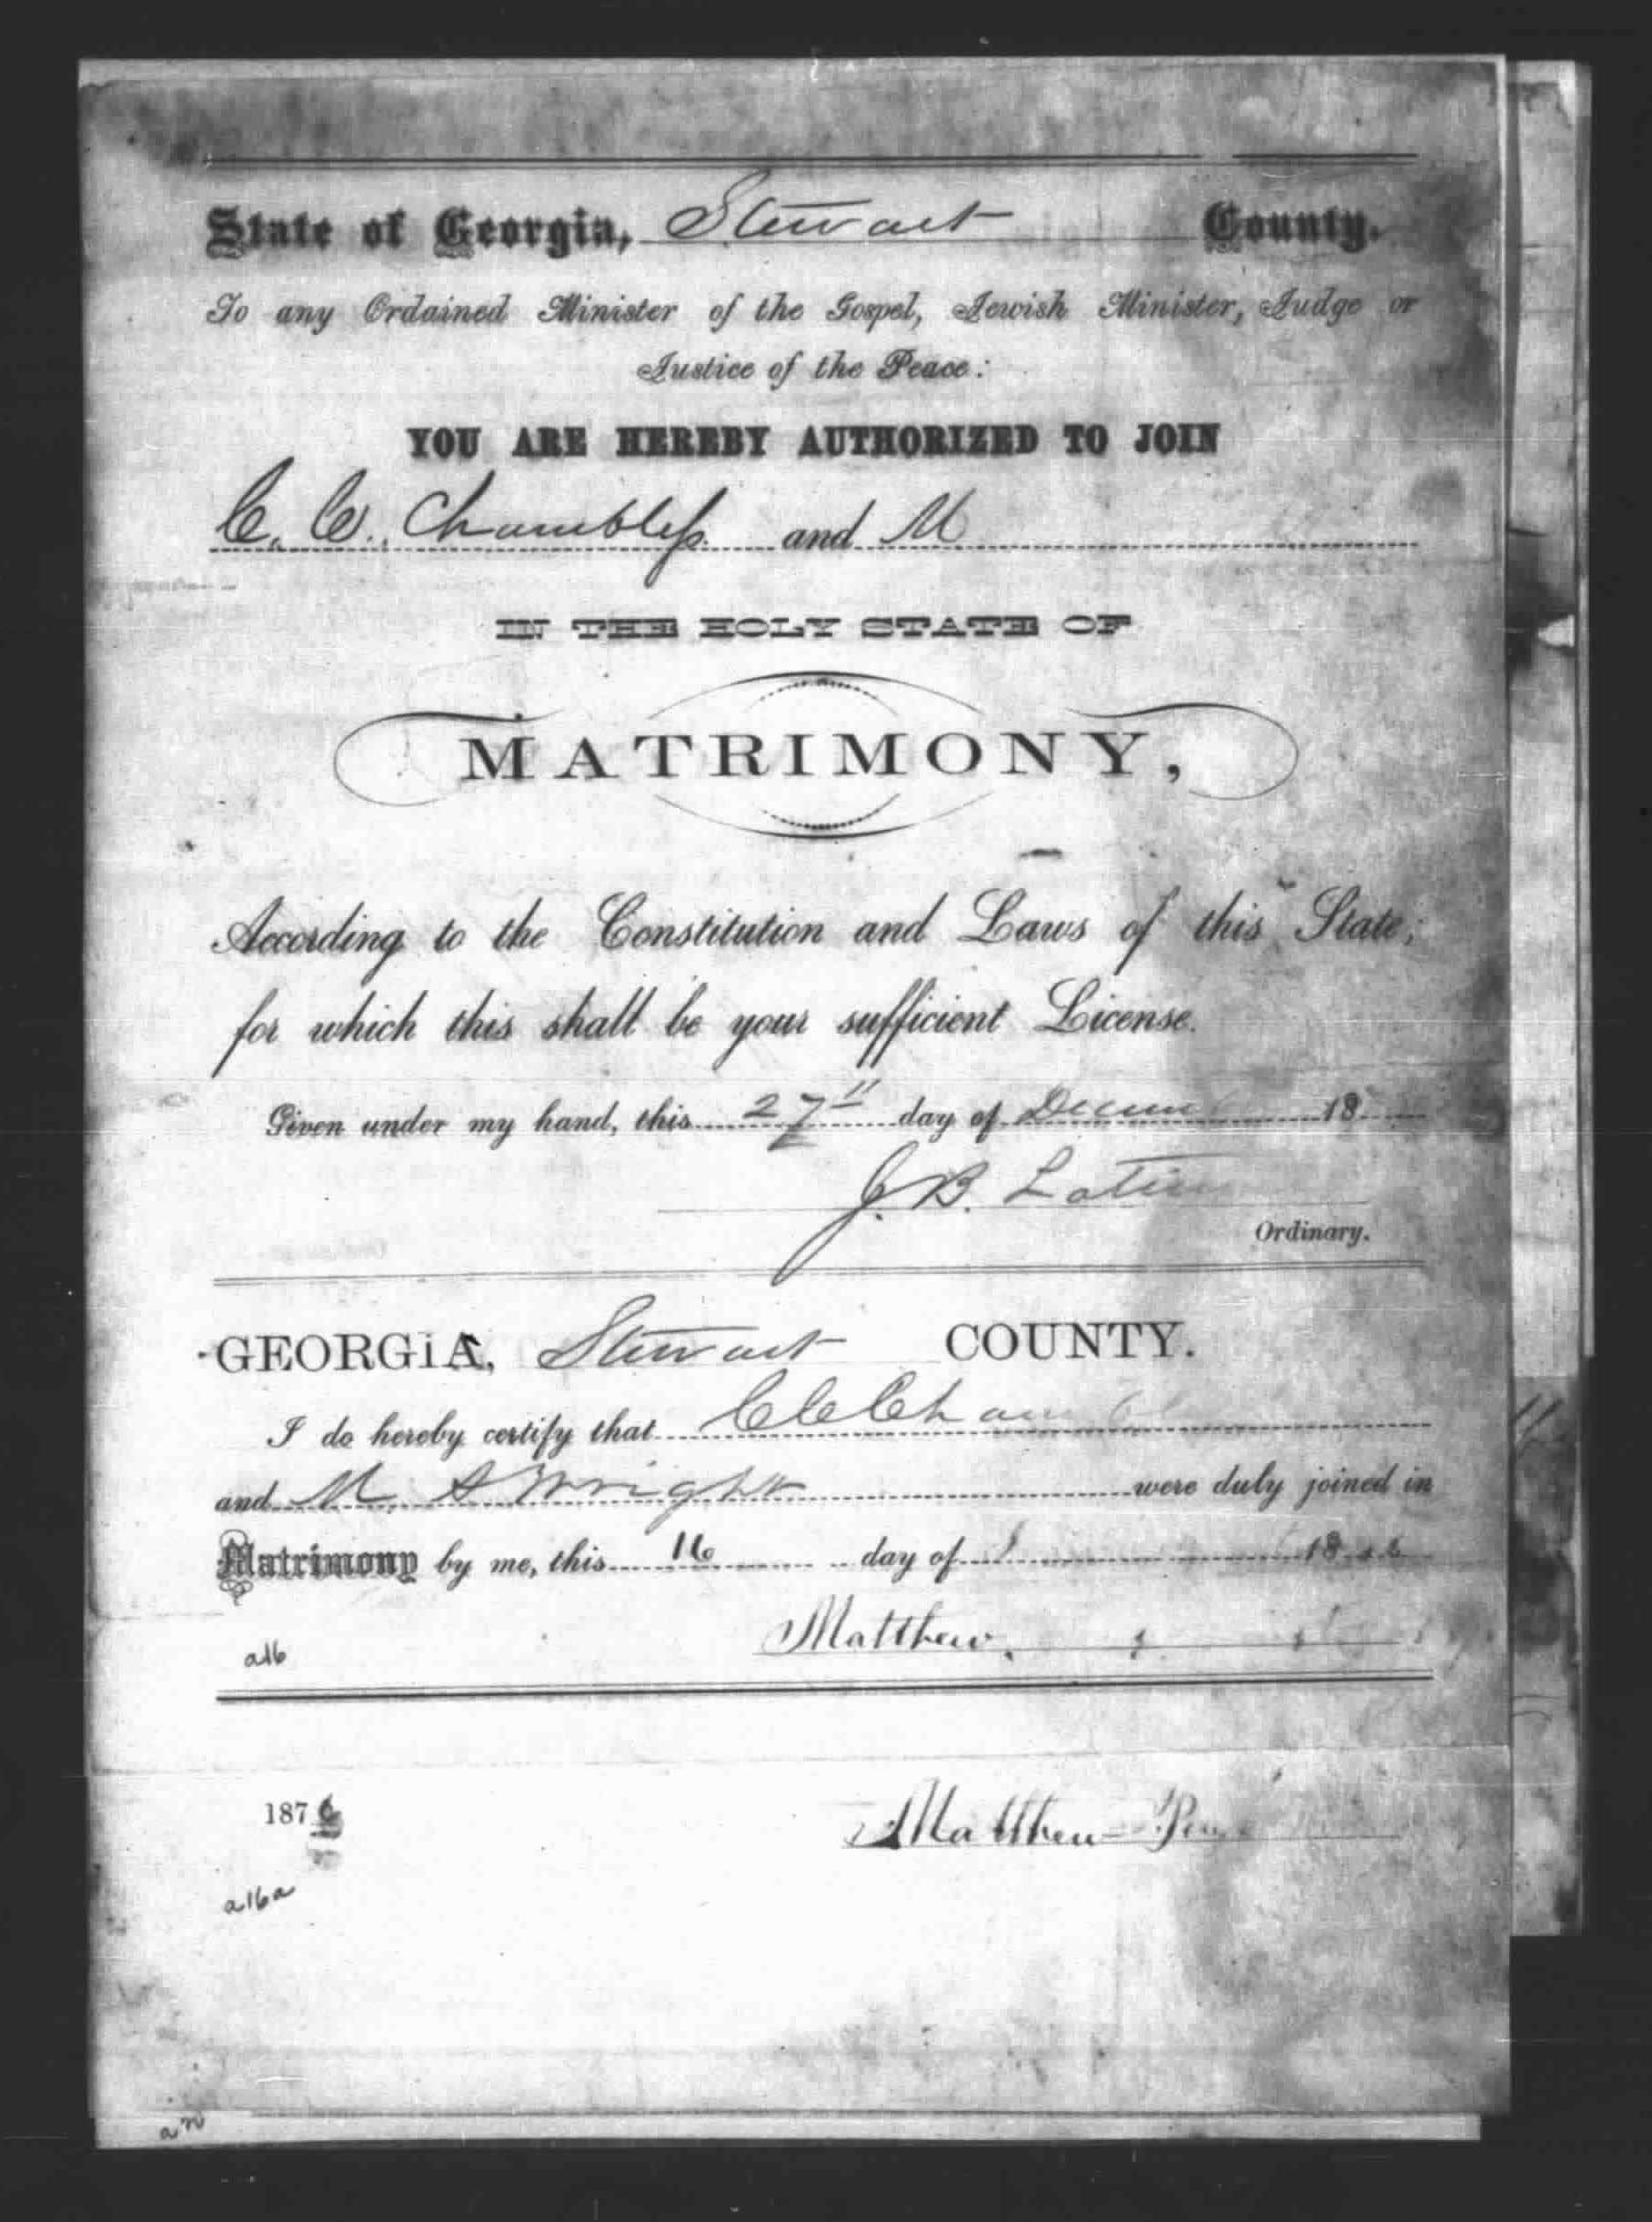 State of Georgia, Stewart County.
To any Ordained Minister of the Gospel, Jewish Minister, Judge or
Justice of the Peace:
YOU ARE HEREBY AUTHORIZED TO JOIN
C. C. Chambless and M
IN THE HOLY STATE OF
MATRIMONY,
According to the Constitution and Laws of this State;
for which this shall be your sufficient License.
Given under my hand, this 27th day of 18
J. B.
Ordinary.
GEORGIA, Stewart COUNTY.
I do hereby certify that C C
and M. A Wright were duly joined in
Matrimony by me, this 16 day of 18
Matthew
a16
1876
Matthew
a16a